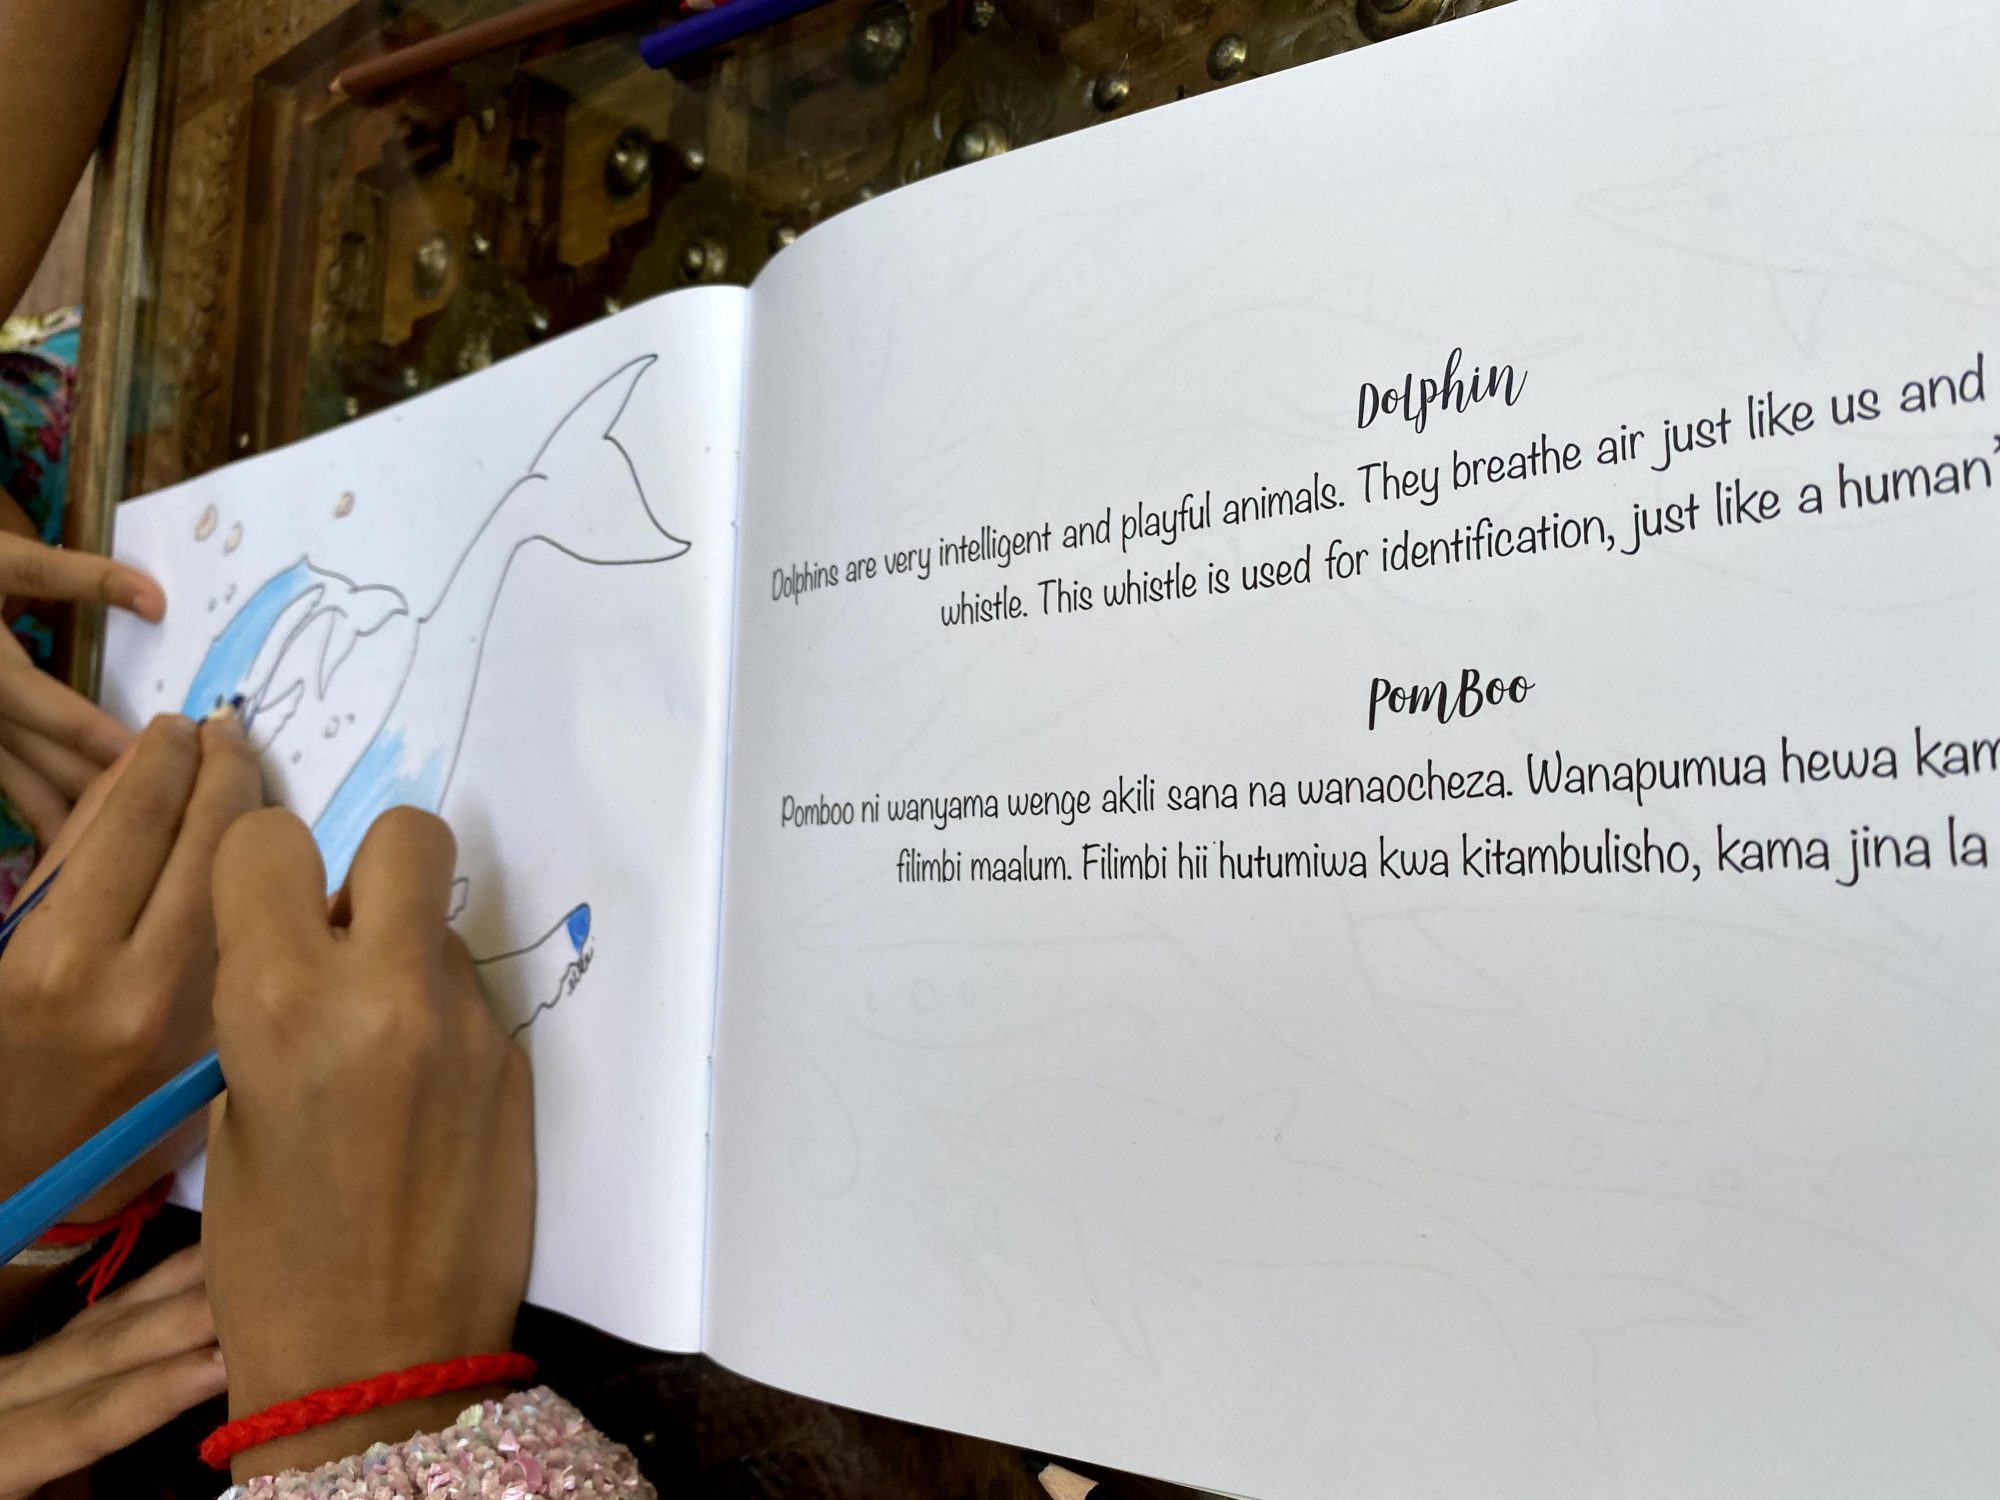 Dolphin
Dolphins are very intelligent and playful animals. They breathe air just like us and
whistle. This whistle is used for identification, just like a human'
PomBoo
Pomboo ni wanyama wenge akili sana na wanaocheza. Wanapumua hewa kam
filimbi maalum. Filimbi hii hutumiwa kwa kitambulisho, kama jina la